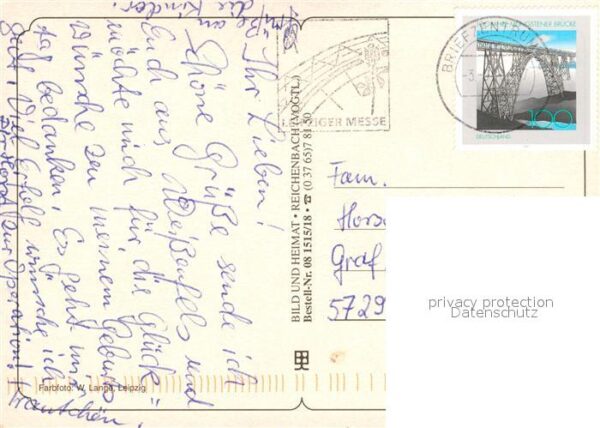 Ihr Lieben!
Schöne Grüße sende ich
Euch aus Weißenfels und
möchte mich für die Glück-
wünsche zu meinem Geburts-
tag bedanken. Es geht mir
gut. Viel Erfolg wünsche ich
zur Operation!
Grüße an
die Kinder!
BILD UND HEIMAT • REICHENBACH (VOGTL.)
Bestell-Nr. 08 1515/18 • ☎ (0 37 65) 7 81 50
LEIPZIGER MESSE
BRIEFZENTRUM
MÜNGSTENER BRÜCKE
100
DEUTSCHLAND
Fam.
Horst
Graf
5729
privacy protection
Datenschutz
Farbfoto: W. Lange, Leipzig